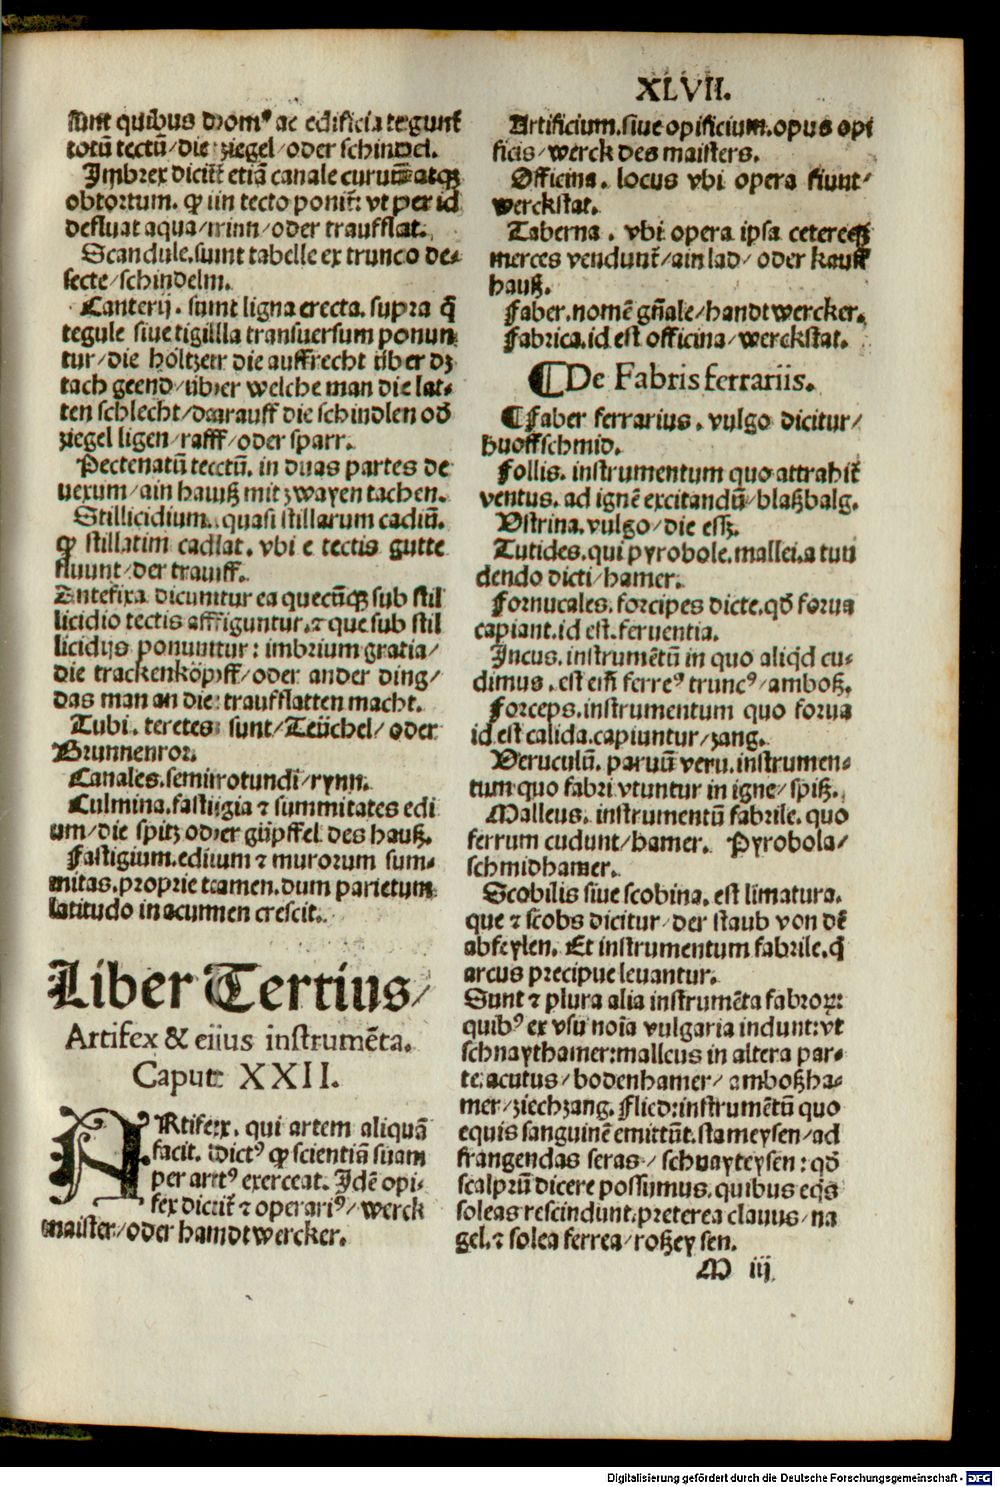 XLVII.
sunt quibus domꝰ ac edificia tegunt̃
totũ tectũ/die ziegel/oder schindel.
Imbrex dicit̃ etiã canale curuũ atqꝫ
obtortum. ꝙ in tecto ponit̃: vt per id
defluat aqua/rinn/oder traufflat.
Scandule.sunt tabelle ex trunco de-
secte/schindeln.
Canterij. sunt ligna erecta.supra q̃
tegule siue tigilla transuersum ponun
tur/die höltzer die auffrecht über dz
tach geend/über welche man die lat-
ten schlecht/darauff die schindlen oð
ziegel ligen/raff/oder sparr.
Pectenatũ tectũ. in duas partes de
uexum/ain hauß mit zwayen tachen.
Stillicidium. quasi stillarum cadiũ.
ꝙ stillatim cadat. vbi e tectis gutte
fluunt/der trauff.
Antefixa dicuntur ea quecũqꝫ sub stil
licidio tectis affiguntur.⁊ que sub stil
licidijs ponuntur: imbrium gratia/
die trackenköpff/oder ander ding/
das man an die traufflatten macht.
Tubi. teretes sunt/Teüchel/oder
Brunnenror.
Canales.semirotundi/rynn.
Culmina.fastigia ⁊ summitates edi
um/die spitz oder güpffel des hauß.
Fastigium.edium ⁊ murorum sum-
mitas.proprie tamen.dum parietum
latitudo in acumen crescit.
Liber Tertius/
Artifex & eius instrumẽta.
Caput XXII.
ARtifex. qui artem aliquã
facit. dictꝰ ꝙ scientiã suam
per artꝰ exerceat. Idẽ opi-
fex dicit̃ ⁊ operariꝰ/werck
maister/oder handtwercker.
Artificium.siue opificium.opus opi
ficis/werck des maisters.
Officina. locus vbi opera fiunt/
werckstat.
Taberna. vbi opera ipsa ceterecqꝫ
merces vendunt̃/ain lad/oder kauff
hauß.
Faber.nomẽ gñale/handtwercker.
Fabrica.id est officina/werckstat.
¶De Fabris ferrariis.
¶Faber ferrarius. vulgo dicitur/
huoffschmid.
Follis. instrumentum quo attrahit̃
ventus. ad ignẽ excitandũ/blaßbalg.
Vstrina.vulgo/die eß.
Tutides.qui pyrobole.mallei.a tun
dendo dicti/hamer.
Fornucales.forcipes dicte.qð forua
capiant.id est.feruentia.
Incus.instrumẽtũ in quo aliqd cu-
dimus.est em̃ ferreꝰ truncꝰ/amboß.
Forceps.instrumentum quo forua
id est calida.capiuntur/zang.
Veruculũ. paruũ veru.instrumen-
tum quo fabri vtuntur in igne/spiß.
Malleus. instrumentũ fabrile. quo
ferrum cudunt/hamer. Pyrobola/
schmidhamer.
Scobilis siue scobina. est limatura.
que ⁊ scobs dicitur/der staub von dẽ
abfeylen. Et instrumentum fabrile.q̃
arcus precipue leuantur.
Sunt ⁊ plura alia instrumẽta fabroꝝ:
quibꝰ ex vsu noĩa vulgaria indunt:vt
schnaythamer:malleus in altera par-
te acutus/bodenhamer/amboßha-
mer/ziechzang. Flied:instrumẽtũ quo
equis sanguinẽ emittũt.stameysen/ad
frangendas seras/schnayteysen:qð
scalprũ dicere possumus.quibus eqs
soleas rescindunt.preterea clauus/na
gel.⁊ solea ferrea/roßeysen.
M iij
Digitalisierung gefördert durch die Deutsche Forschungsgemeinschaft - DFG